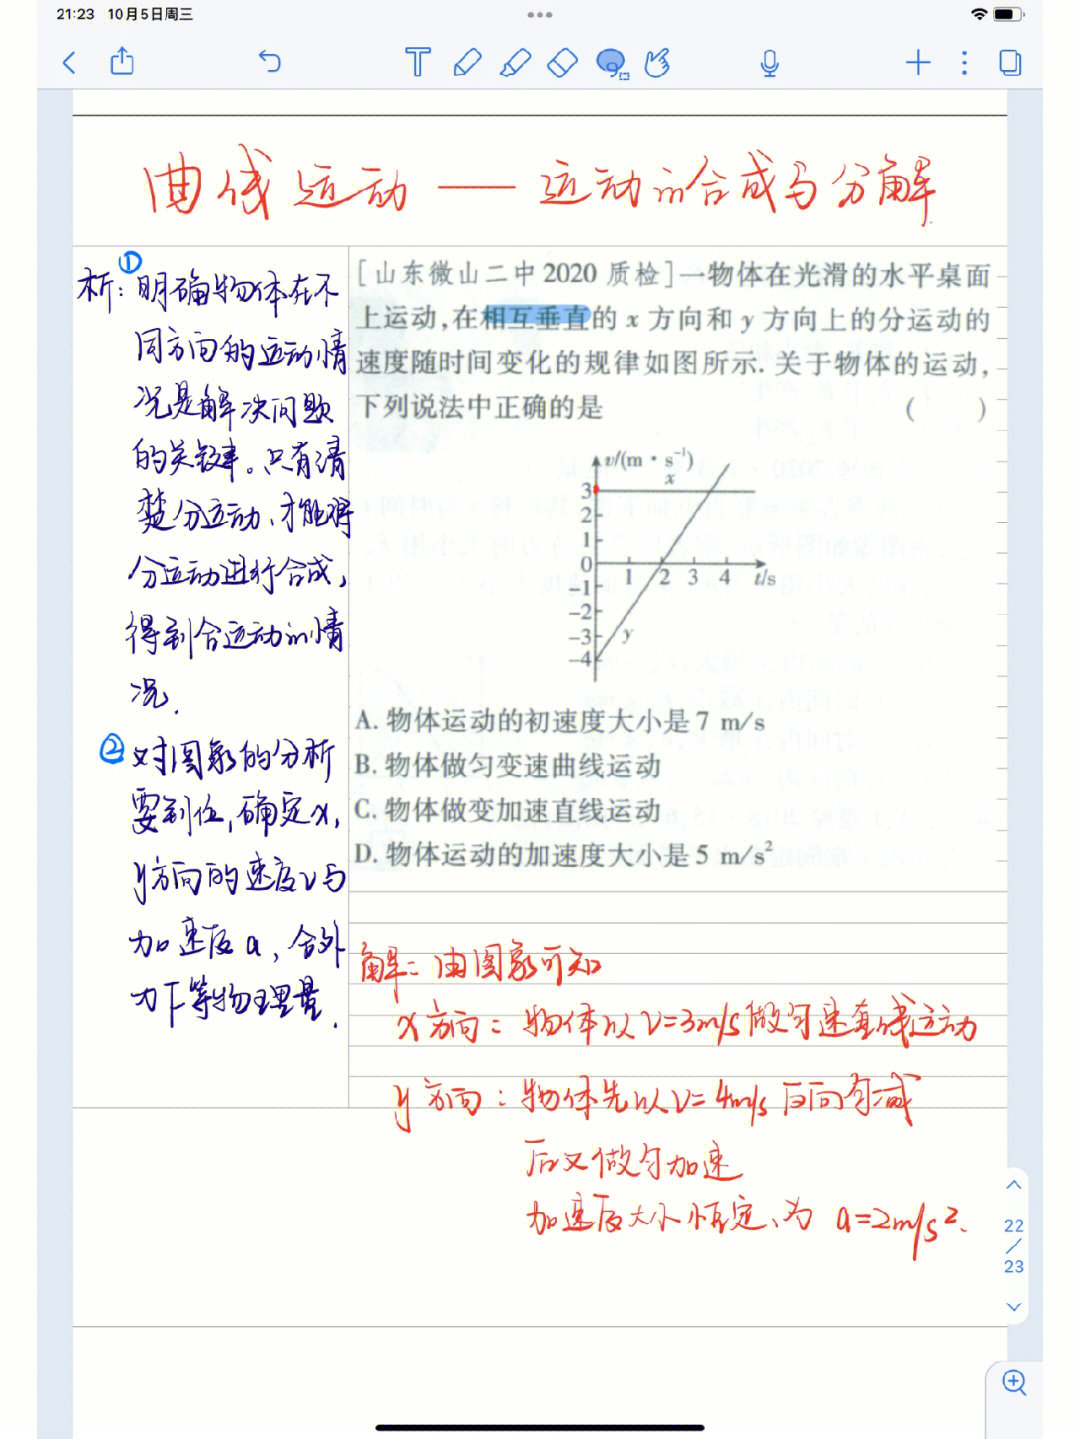 21:23 10月5日周三
曲线运动——运动的合成与分解
析:①明确物体在不
同方向的运动情
况是解决问题
的关键。只有清
楚分运动,才能将
分运动进行合成,
得到合运动的情
况.
②对图象的分析
要到位,确定x,
y方向的速度v与
加速度a,合外
力F等物理量.
[山东微山二中2020质检]一物体在光滑的水平桌面
上运动,在相互垂直的x方向和y方向上的分运动的
速度随时间变化的规律如图所示.关于物体的运动,
下列说法中正确的是 ( )
v/(m·s⁻¹)
x
3
2
1
0
1 2 3 4 t/s
-1
-2
-3
-4
y
A.物体运动的初速度大小是7 m/s
B.物体做匀变速曲线运动
C.物体做变加速直线运动
D.物体运动的加速度大小是5 m/s²
解:由图象可知
x方向:物体以v=3m/s做匀速直线运动
y方向:物体先以v=4m/s反向匀减
后又做匀加速
加速度大小恒定,为 a=2m/s².
22
/
23